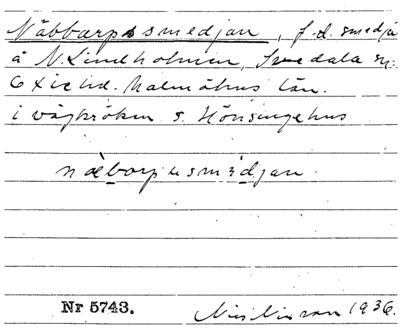 Näbbarpssmedjan, f.d. smedja
å N. Lindholmen, Svedala sn:
Oxie hd. Malmöhus län.
i vägkröken s. Hönsingehus
næbarpusmédjan.
Nr 5743.
Nils Nilsson 1936.